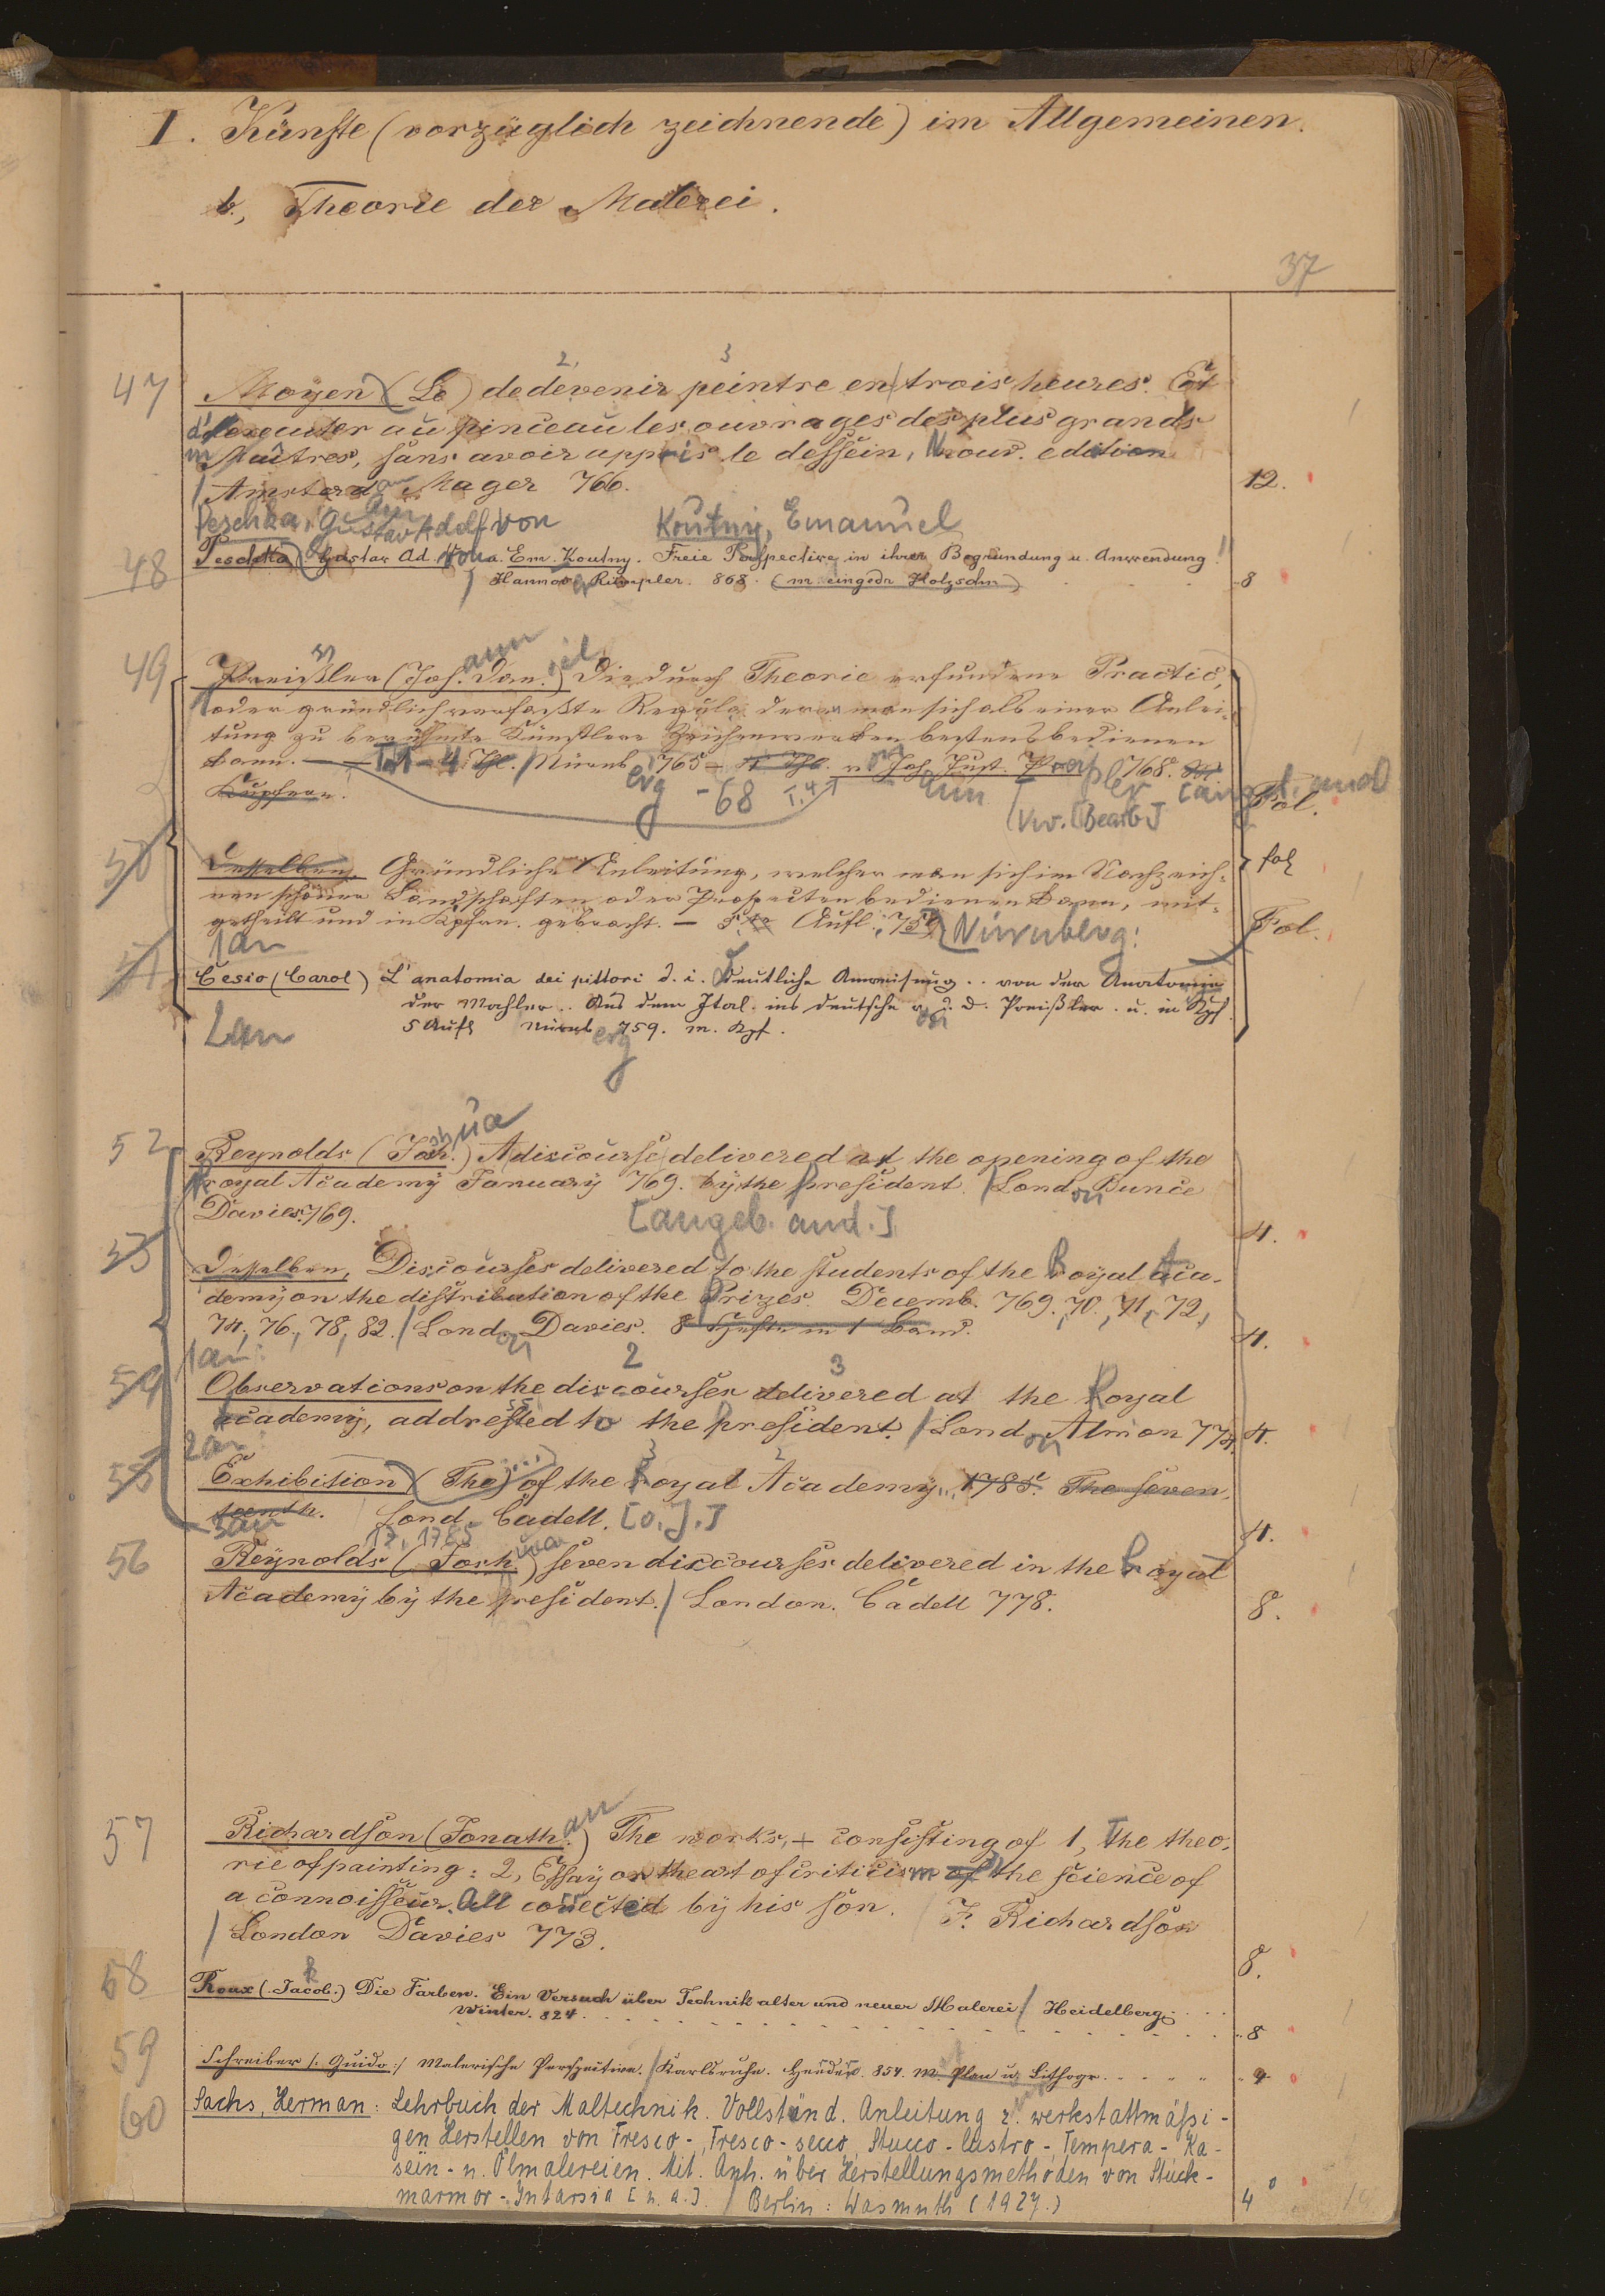 I. Künste (vorzüglich zeichnende) im Allgemeinen.
b., Theorie der Malerei.
37
47 Moyen (Le) de devenir peintre en trois heures. Et
d'executer au pinceau les ouvrages des plus grands
Maitres, sans avoir appris le dessein, Nouv. edition
Amsterdam Mager 766. 12.
Peschka, Gustav Adolf von Koutny, Emanuel
48 Peschka (Gustav Ad. Von u. Em. Koutny. Freie Perspective in ihrer Begründung u. Anwendung
Hannover Rümpler. 868. (m. eingedr Holzschn) 8
49 Preißler (Joh. Dan.) Die durch Theorie erfundene Practic,
oder gründlich verfaßte Regeln deren man sich als einer Anlei-
tung zu berühmter Künstlere Zeichenwerken bestens bedienen
kann. — T. 1-4 Thl. Nürnb. 765 — 4 Thl. v. Joh. Just. Preißler 768. M.
Kupfern. erg -68 T. 4 ann [angeb. and] Fol.
Vw. [Bearb]
50 Desselben, Gründliche Anleitung, welcher man sich im Nachzeich-
nen schöner Landschaften oder Prospecten bedienen kann, mit-
getheilt und in Kpfrn. gebracht. — 5te Aufl. 759 Nürnberg: Fol.
1 an
51 Cesio (Carol) L'anatomia dei pittori d. i. deutliche Anweisung .. von der Anatomie
der Mahler .. Aus dem Ital. ins deutsche v. J. D. Preißler. u. in Kpf
5 Aufl Nürnb 759. m. Kpf. fol
2 an erg
52 Reynolds (Josh.) A discourse delivered at the opening of the
royal Academy January 769. by the president. London Bunce
Davies 769. [angeb. and.] 4.
53 Desselben, Discourses delivered to the students of the Royal Aca-
demy on the distribution of the Prizes. Decemb. 769. 70. 71, 72,
74, 76, 78, 82. Lond. Davies. 8 Hefte in 1 Band. 4.
1 an: 2 3
54 Observations on the discourses delivered at the Royal
academy, addressed to the president. London Almon 774 4.
2 an:
55 Exhibition (The) of the Royal Academy, 1785. The seven-
teenth. Lond. Cadell. [o. J.] 4.
3 an 17, 1785
56 Reynolds (Josh.) seven discourses delivered in the Royal
Academy by the president. London. Cadell 778. 8.
57 Richardson (Jonath.) The works, + consisting of 1, The theo-
rie of painting: 2, Essay on the art of criticism of the science of
a connoisseur. All corrected by his son. J. Richardson
London Davies 773. 8.
58 Roux (Jacob.) Die Farben. Ein Versuch über Technik alter und neuer Malerei. Heidelberg.
Winter. 824. 8
59 Schreiber /: Guido :/ Malerische Perspective. Karlsruhe. Herder. 854. M. Plan u. Lithogr. 4
60 Sachs, Herman: Lehrbuch der Maltechnik. Vollständ. Anleitung z. werkstattmäßi-
gen Herstellen von Fresco-, Fresco-secco, Stucco-lustro-, Tempera-, Ka-
sein- u. Ölmalereien. Mit. Anh. über Herstellungsmethoden von Stuck-
marmor-Intarsia [u. a.]. Berlin: Wasmuth (1927.) 4°